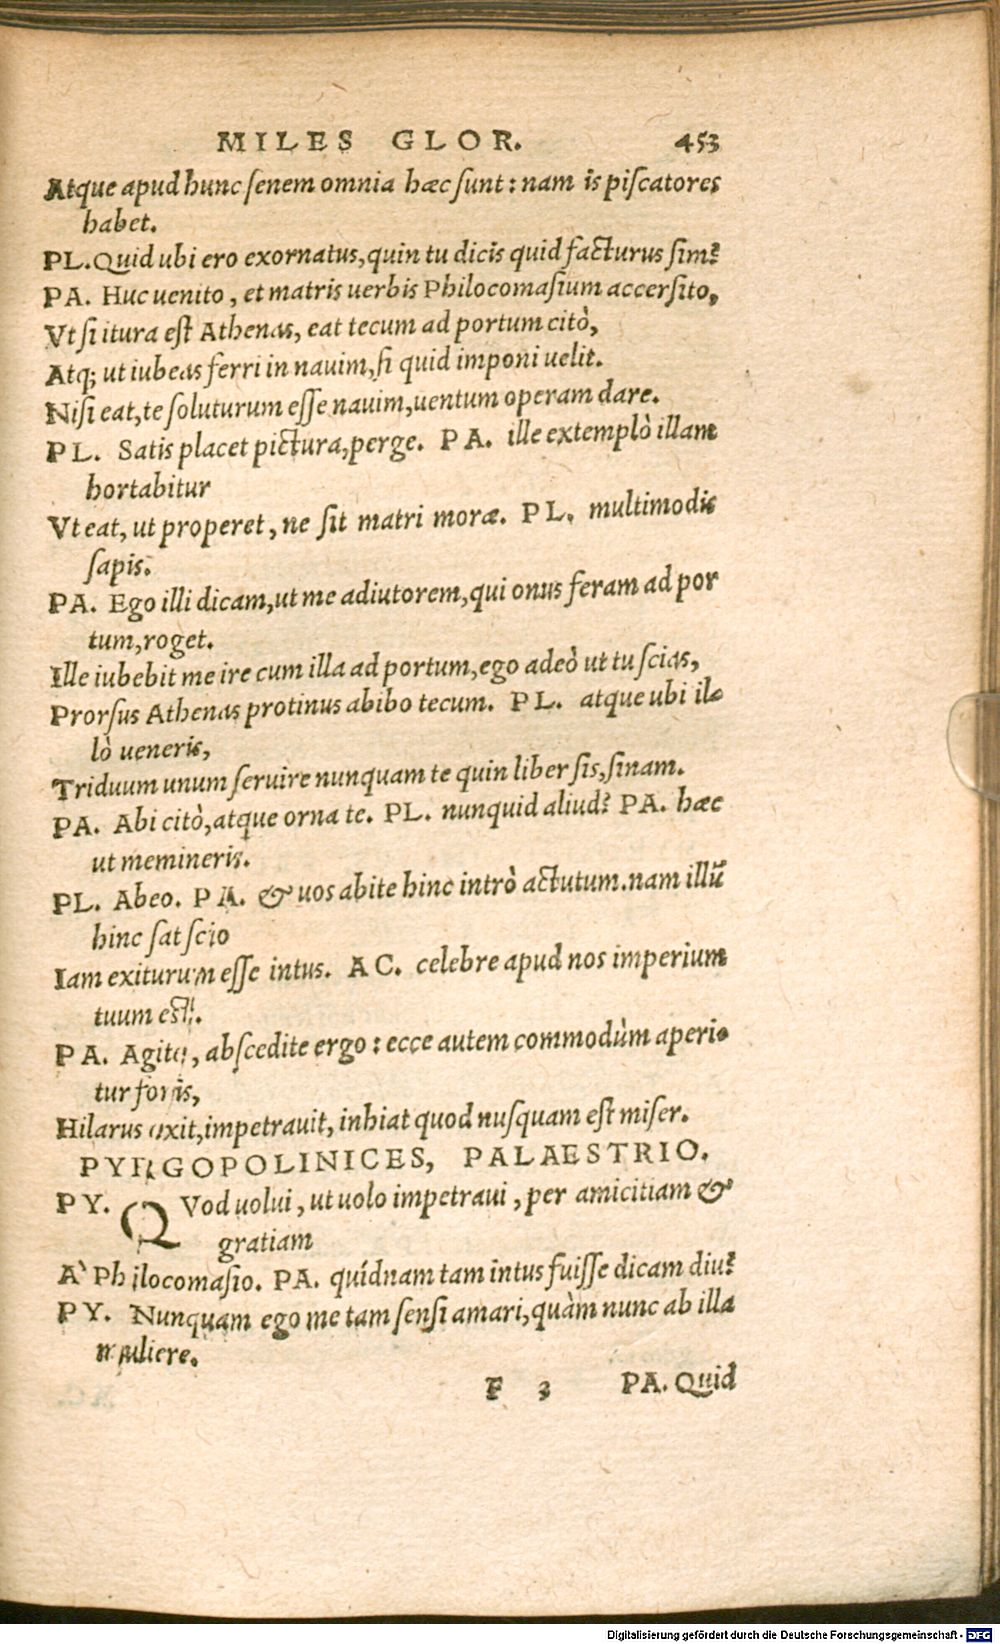 MILES GLOR. 453
Atque apud hunc ſenem omnia hæc ſunt: nam is piſcatores
habet.
PL. Quid ubi ero exornatus, quin tu dicis quid facturus ſim?
PA. Huc uenito, et matris uerbis Philocomaſium accerſito,
Vt ſi itura eſt Athenas, eat tecum ad portum citò,
Atq; ut iubeas ferri in nauim, ſi quid imponi uelit.
Niſi eat, te ſoluturum eſſe nauim, uentum operam dare.
PL. Satis placet pictura, perge. PA. ille extemplò illam
hortabitur
Vt eat, ut properet, ne ſit matri moræ. PL. multimodis
ſapis.
PA. Ego illi dicam, ut me adiutorem, qui onus feram ad por
tum, roget.
Ille iubebit me ire cum illa ad portum, ego adeò ut tu ſcias,
Prorſus Athenas protinus abibo tecum. PL. atque ubi il-
lò ueneris,
Triduum unum ſeruire nunquam te quin liber ſis, ſinam.
PA. Abi citò, atque orna te. PL. nunquid aliud? PA. hæc
ut memineris.
PL. Abeo. PA. & uos abite hinc intrò actutum. nam illũ
hinc ſat ſcio
Iam exiturum eſſe intus. AC. celebre apud nos imperium
tuum eſt.
PA. Agite, abſcedite ergo: ecce autem commodùm aperi-
tur foris,
Hilarus exit, impetrauit, inhiat quod nuſquam eſt miſer.
PYRGOPOLINICES, PALAESTRIO.
PY. QVod uolui, ut uolo impetraui, per amicitiam &
gratiam
A` Philocomaſio. PA. quídnam tam intus fuiſſe dicam diu?
PY. Nunquam ego me tam ſenſi amari, quàm nunc ab illa
muliere.
F 3 PA. Quid
Digitalisierung gefördert durch die Deutsche Forschungsgemeinschaft - DFG